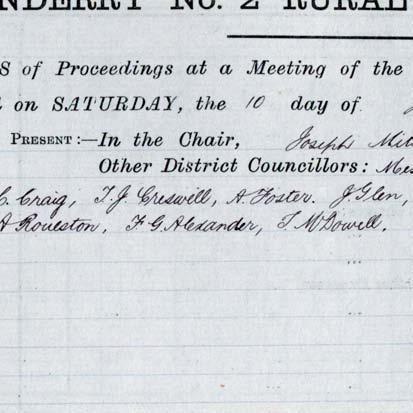 NDERRY No. 2 RURAL
S of Proceedings at a Meeting of the
on SATURDAY, the 10 day of
PRESENT:—In the Chair, Joseph Mit
Other District Councillors: Mes
C. Craig, T. J. Creswell, A. Foster. J. Glen,
A Roulston, F G Alexander, T McDowell.